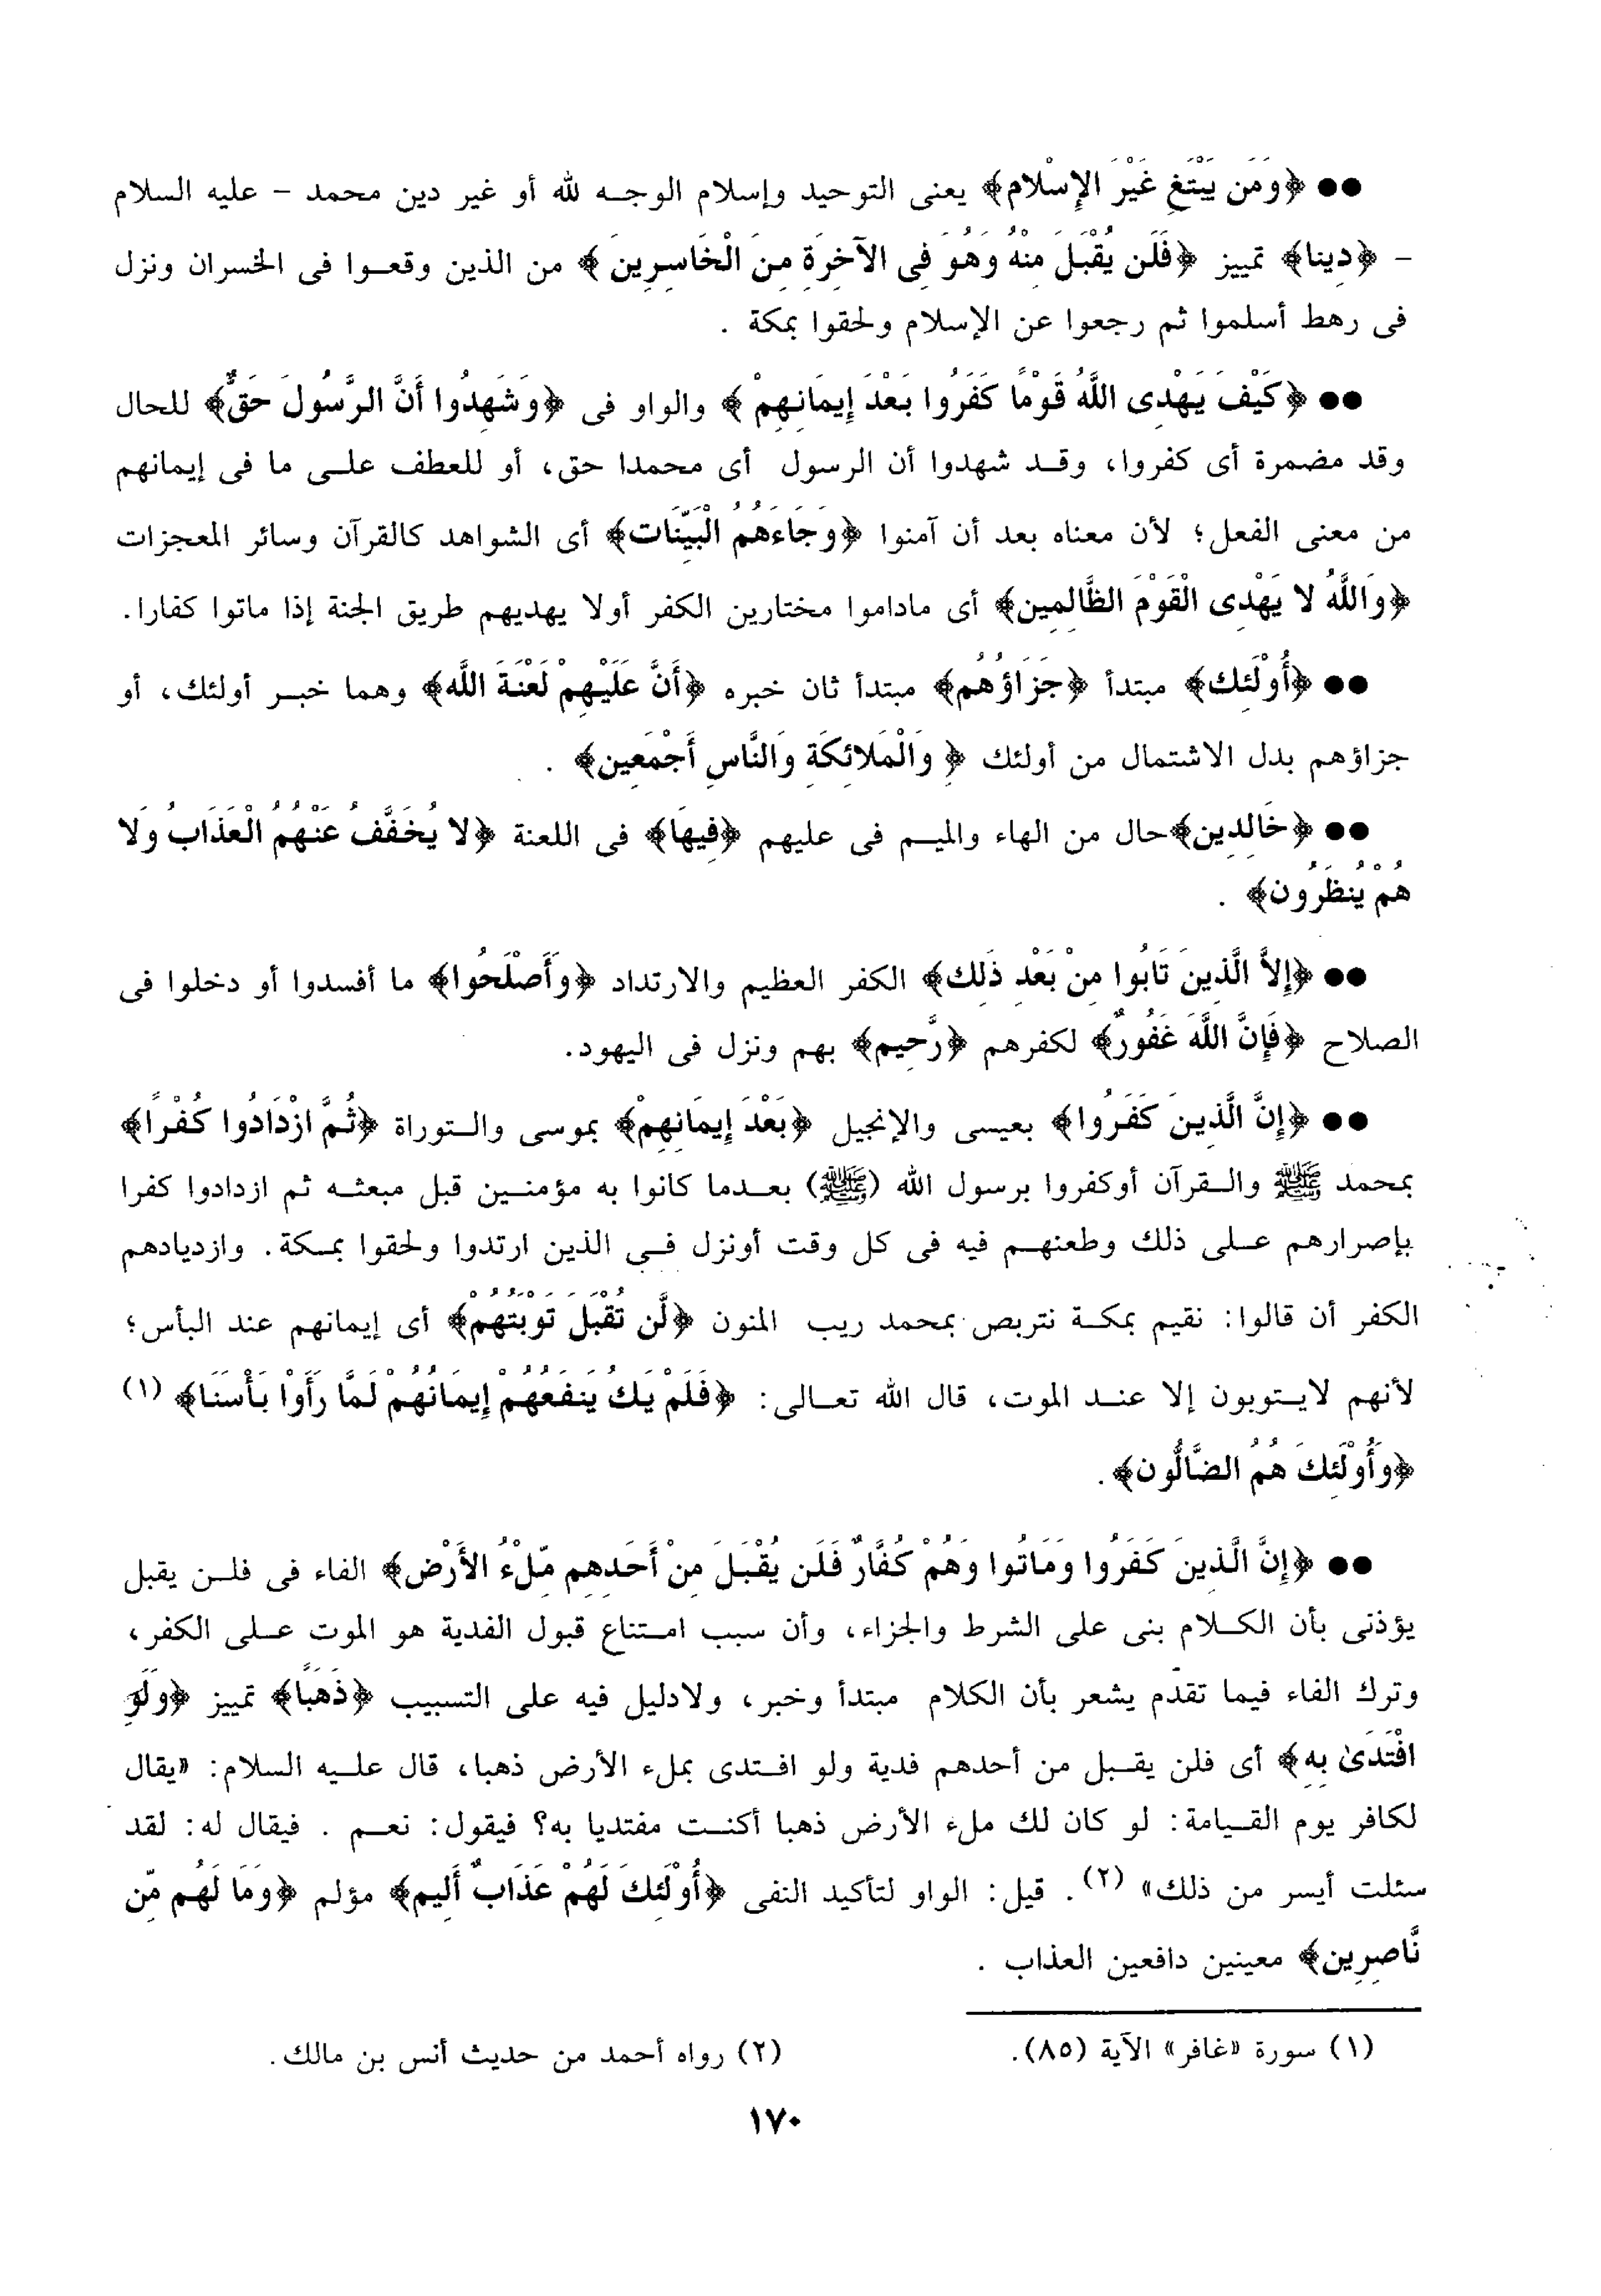 ●● ﴿وَمَن يَبْتَغِ غَيْرَ الإِسْلامِ﴾ يعنى التوحيد وإسلام الوجـه لله أو غير دين محمد - عليه السلام
- ﴿دِينا﴾ تمييز ﴿فَلَن يُقْبَلَ مِنْهُ وَهُوَ فِى الآخِرَةِ مِنَ الْخَاسِرِينَ﴾ من الذين وقعـوا فى الخسران ونزل
فى رهط أسلموا ثم رجعوا عن الإسلام ولحقوا بمكة .
●● ﴿كَيْفَ يَهْدِى اللَّهُ قَوْمًا كَفَرُوا بَعْدَ إِيمَانِهِمْ﴾ والواو فى ﴿وَشَهِدُوا أَنَّ الرَّسُولَ حَقٌّ﴾ للحال
وقد مضمرة أى كفروا، وقـد شهدوا أن الرسول أى محمدا حق، أو للعطف علـى ما فى إيمانهم
من معنى الفعل؛ لأن معناه بعد أن آمنوا ﴿وَجَاءَهُمُ الْبَيِّنَات﴾ أى الشواهد كالقرآن وسائر المعجزات
﴿وَاللَّهُ لا يَهْدِى الْقَوْمَ الظَّالِمِين﴾ أى ماداموا مختارين الكفر أولا يهديهم طريق الجنة إذا ماتوا كفارا.
●● ﴿أُوْلَئِك﴾ مبتدأ ﴿جَزَاؤُهُم﴾ مبتدأ ثان خبره ﴿أَنَّ عَلَيْهِمْ لَعْنَةَ اللَّه﴾ وهما خبـر أولئك، أو
جزاؤهم بدل الاشتمال من أولئك ﴿ وَالْمَلائِكَةِ وَالنَّاسِ أَجْمَعِين﴾ .
●● ﴿خَالِدِين﴾حال من الهاء والميـم فى عليهم ﴿فِيهَا﴾ فى اللعنة ﴿لا يُخَفَّفُ عَنْهُمُ الْعَذَابُ وَلا
هُمْ يُنظَرُون﴾ .
●● ﴿إِلاَّ الَّذِينَ تَابُوا مِنْ بَعْدِ ذَلِك﴾ الكفر العظيم والارتداد ﴿وَأَصْلَحُوا﴾ ما أفسدوا أو دخلوا فى
الصلاح ﴿فَإِنَّ اللَّهَ غَفُورٌ﴾ لكفرهم ﴿رَّحِيم﴾ بهم ونزل فى اليهود.
●● ﴿إِنَّ الَّذِينَ كَفَرُوا﴾ بعيسى والإنجيل ﴿بَعْدَ إِيمَانِهِمْ﴾ بموسى والـتوراة ﴿ثُمَّ ازْدَادُوا كُفْرًا﴾
بمحمد ﷺ والـقرآن أوكفروا برسول الله (ﷺ) بعـدما كانوا به مؤمنـين قبل مبعثـه ثم ازدادوا كفرا
بإصرارهم عـلى ذلك وطعنهـم فيه فى كل وقت أونزل فـى الذين ارتدوا ولحقوا بمـكة. وازديادهم
الكفر أن قالوا: نقيم بمكـة نتربص بمحمد ريب المنون ﴿لَّن تُقْبَلَ تَوْبَتُهُمْ﴾ أى إيمانهم عند البأس؛
لأنهم لايـتوبون إلا عنـد الموت، قال الله تعـالى: ﴿فَلَمْ يَكُ يَنفَعُهُمْ إِيمَانُهُمْ لَمَّا رَأَوْا بَأْسَنَا﴾ (١)
﴿وَأُوْلَئِكَ هُمُ الضَّالُّون﴾.
●● ﴿إِنَّ الَّذِينَ كَفَرُوا وَمَاتُوا وَهُمْ كُفَّارٌ فَلَن يُقْبَلَ مِنْ أَحَدِهِم مِّلْءُ الأَرْض﴾ الفاء فى فلـن يقبل
يؤذنى بأن الكـلام بنى على الشرط والجزاء، وأن سبب امـتناع قبول الفدية هو الموت عـلى الكفر،
وترك الفاء فيما تقدّم يشعر بأن الكلام مبتدأ وخبر، ولادليل فيه على التسبيب ﴿ذَهَبًا﴾ تمييز ﴿وَلَوِ
افْتَدَىٰ بِهِ﴾ أى فلن يقـبل من أحدهم فدية ولو افـتدى بملء الأرض ذهبا، قال علـيه السلام: «يقال
لكافر يوم القـيامة: لو كان لك ملء الأرض ذهبا أكنـت مفتديا به؟ فيقول: نعـم . فيقال له: لقد
سئلت أيسر من ذلك» (٢). قيل: الواو لتأكيد النفى ﴿أُوْلَئِكَ لَهُمْ عَذَابٌ أَلِيم﴾ مؤلم ﴿وَمَا لَهُم مِّن
نَّاصِرِين﴾ معينين دافعين العذاب .
(١) سورة «غافر» الآية (٨٥).
(٢) رواه أحمد من حديث أنس بن مالك.
١٧٠